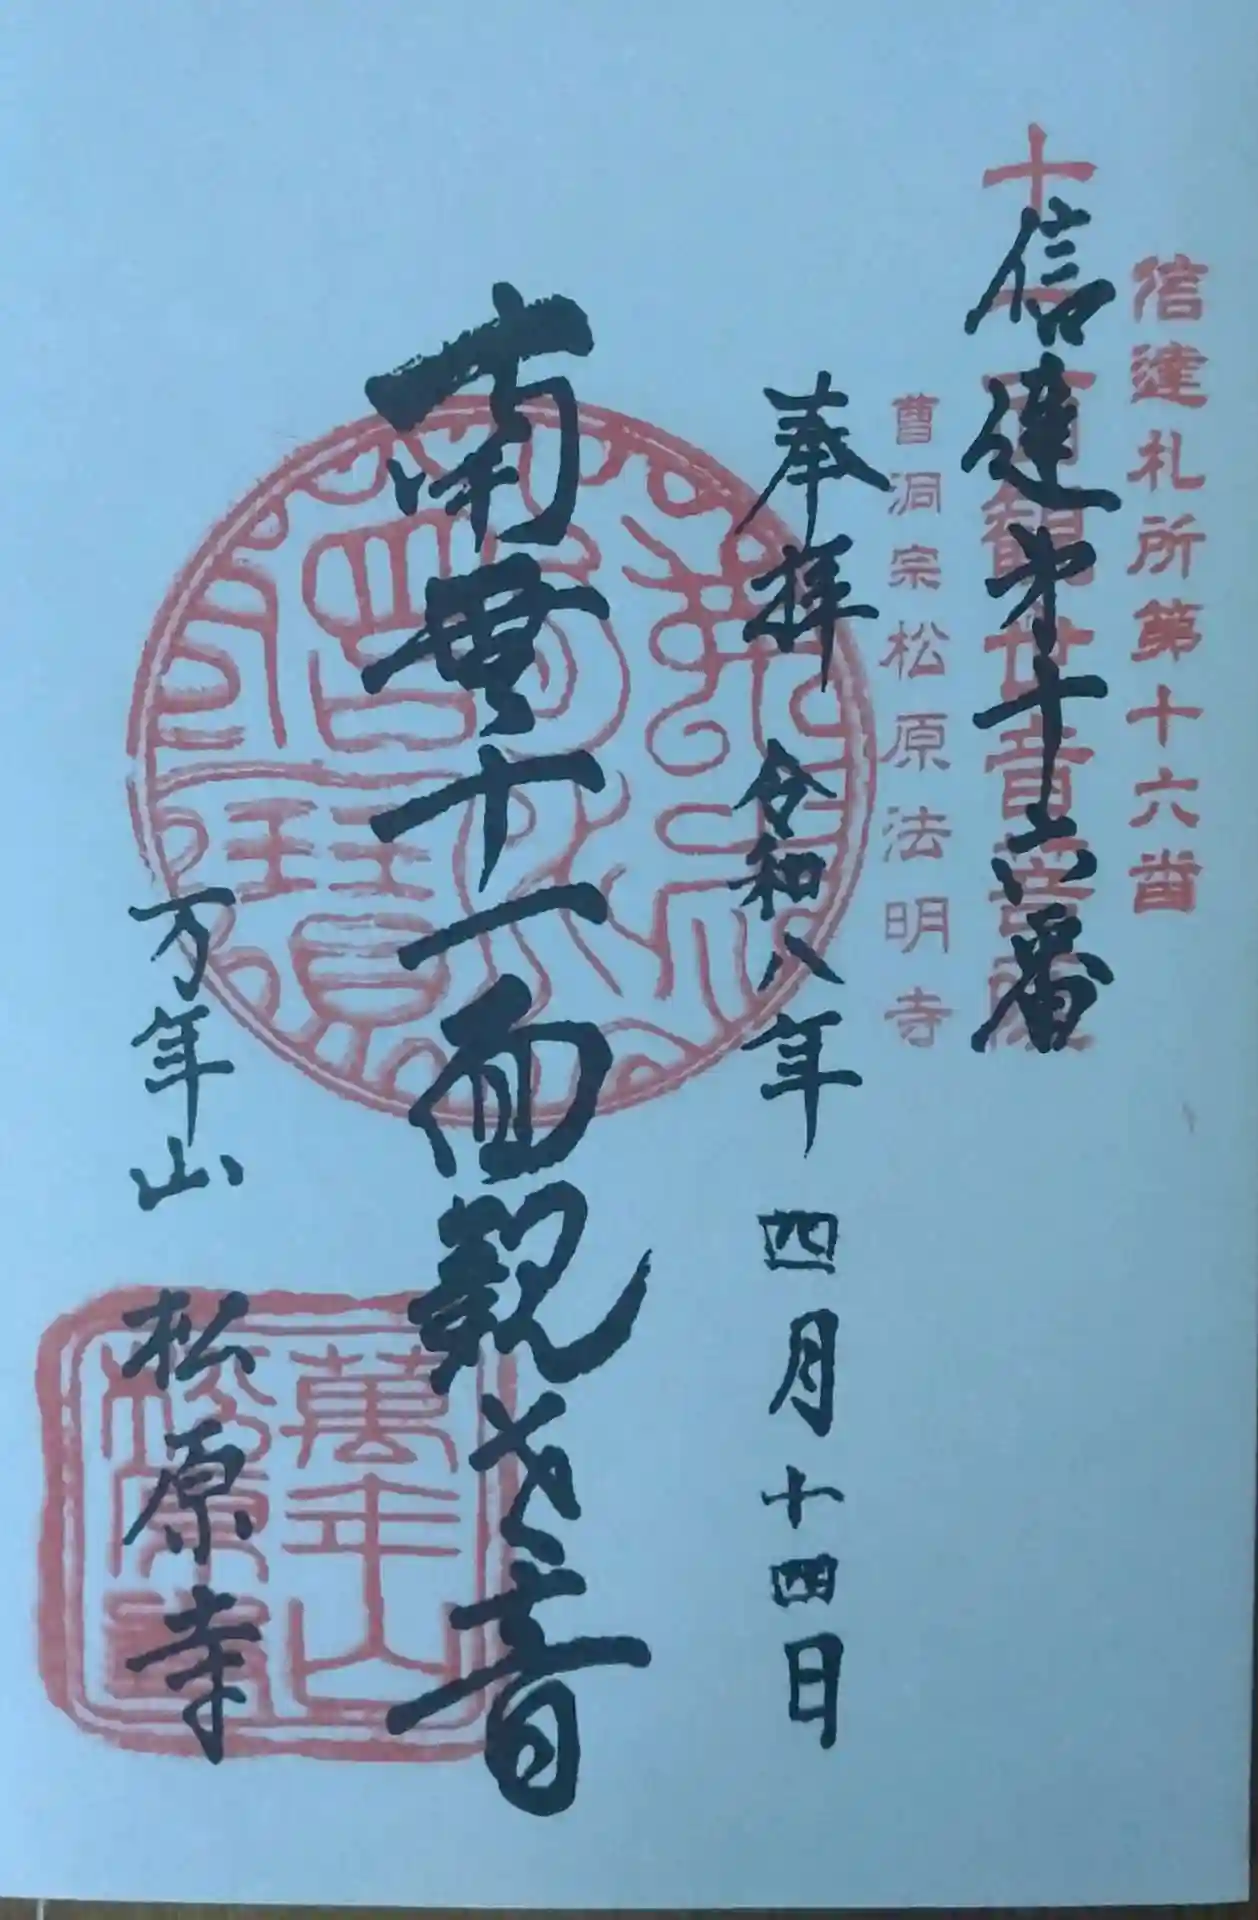 信達札所第十六番
十一面観世音菩薩
信達第十六番
曹洞宗松原法明寺
奉拝 令和八年 四月十四日
南無十一面観世音
万年山 松原寺
萬年山
松原寺